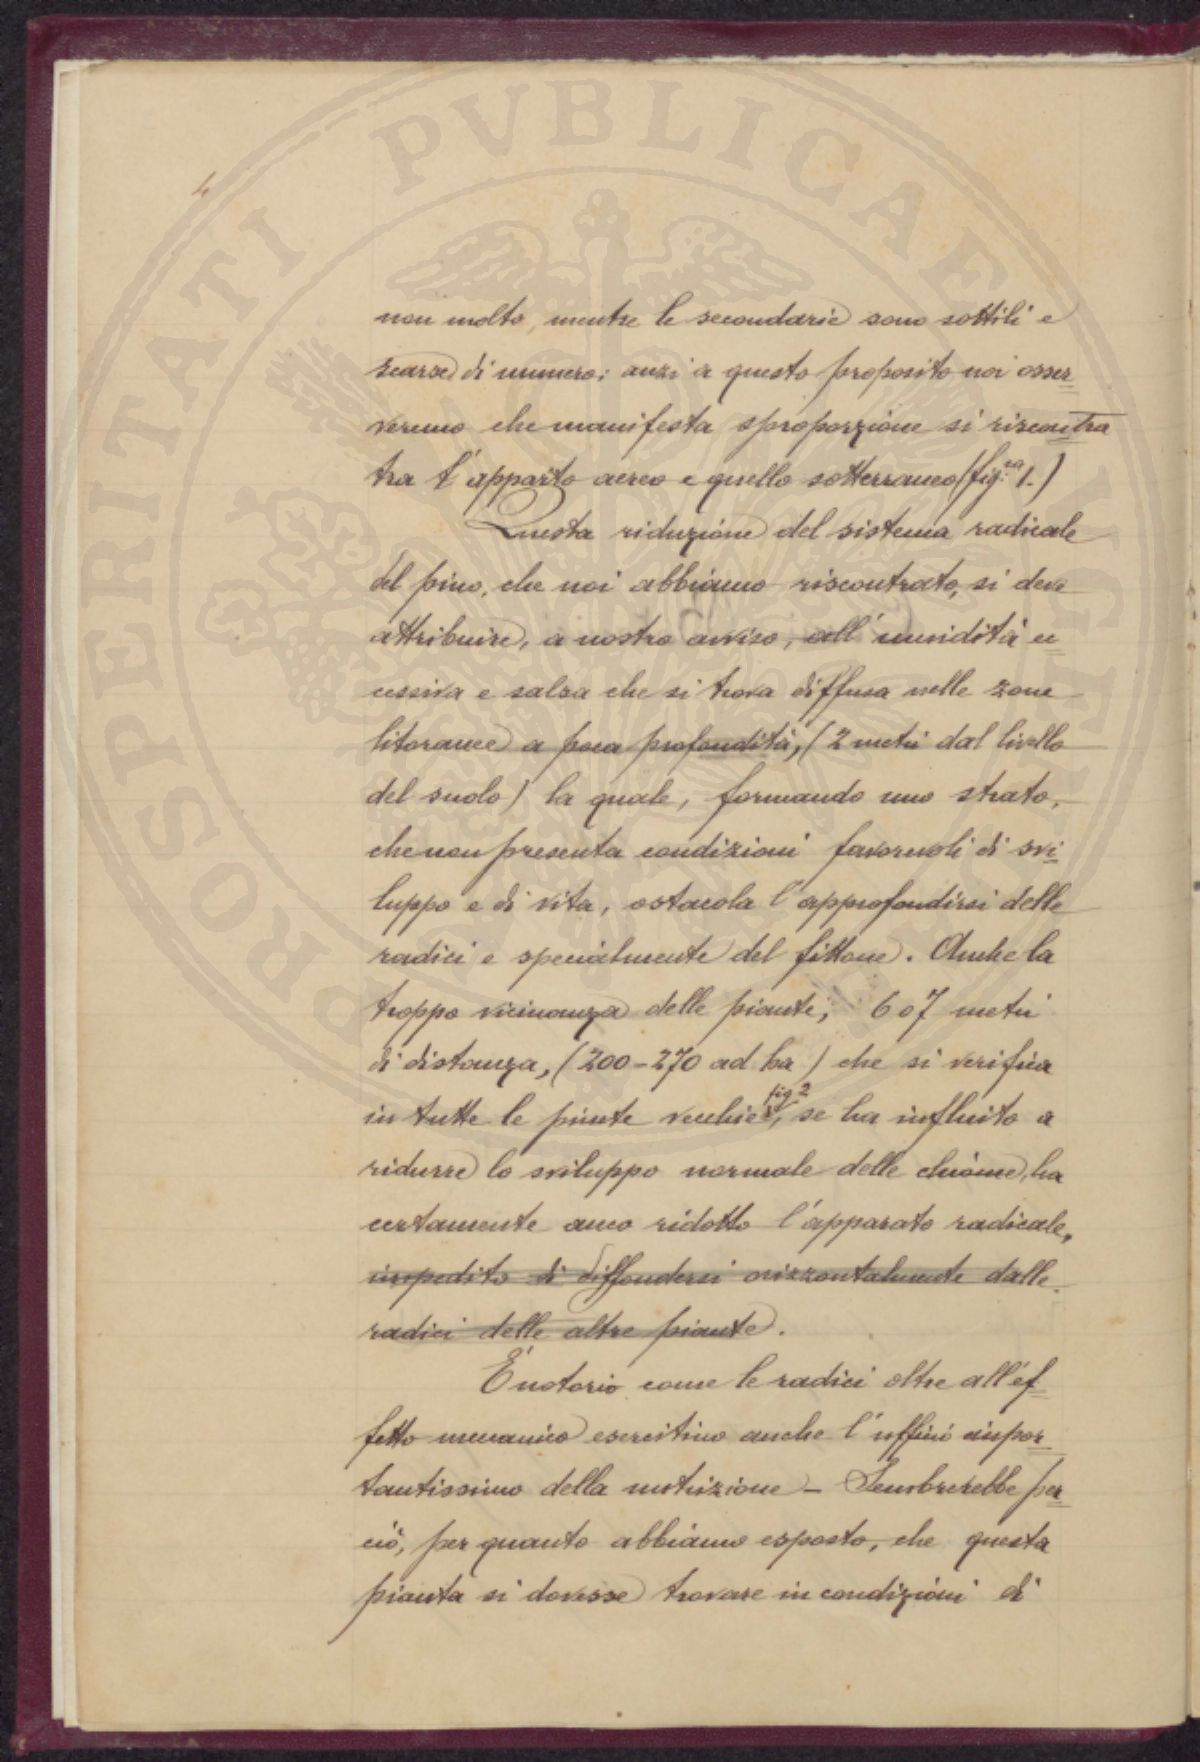 4
non molto, mentre le secondarie sono sottili e
scarse di numero; anzi a questo proposito noi osser
veremo che manifesta sproporzione si riscontra
tra l'apparto aereo e quello sotterraneo (fig.ra 1.)
Questa riduzione del sistema radicale
del pino, che noi abbiamo riscontrato, si deve
attribuire, a nostro avviso, all'umidità ec
cessiva e salsa che si trova diffusa nelle zone
litoranee a poca profondità, (2 metri dal livello
del suolo) la quale, formando uno strato,
che non presenta condizioni favorevoli di svi
luppo e di vita, ostacola l'approfondirsi delle
radici e specialmente del fittone. Anche la
troppo vicinanza delle piante, 6 o 7 metri
di distanza, (200-270 ad ha) che si verifica
in tutte le pinete vecchie, fig 2 se ha influito a
ridurre lo sviluppo normale delle chiome, ha
certamente anco ridotto l'apparato radicale,
impedito di diffondersi orizzontalmente dalle
radici delle altre piante.
È notorio come le radici oltre all'ef
fetto meccanico esercitino anche l'ufficio impor
tantissimo della nutrizione - Sembrerebbe per
ciò, per quanto abbiamo esposto, che questa
pianta si dovesse trovare in condizioni di
PROSPERITATI PVBLICAE AVGENDAE